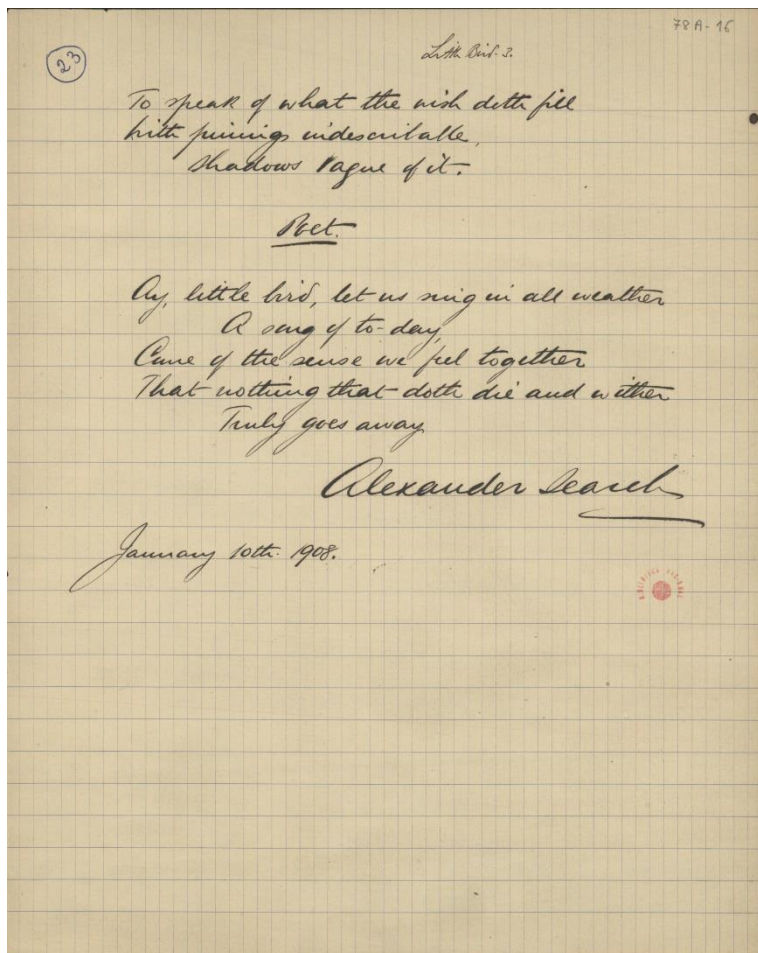 78A-16
23
Little Bird - 3.
To speak of what the wish doth fill
With pinings indescribable,
Shadows vague of it.
Poet.
Ay, little bird, let us sing in all weather
A song of to-day,
Come of the sense we feel together
That nothing that doth die and wither
Truly goes away
Alexander Search
January 10th. 1908.